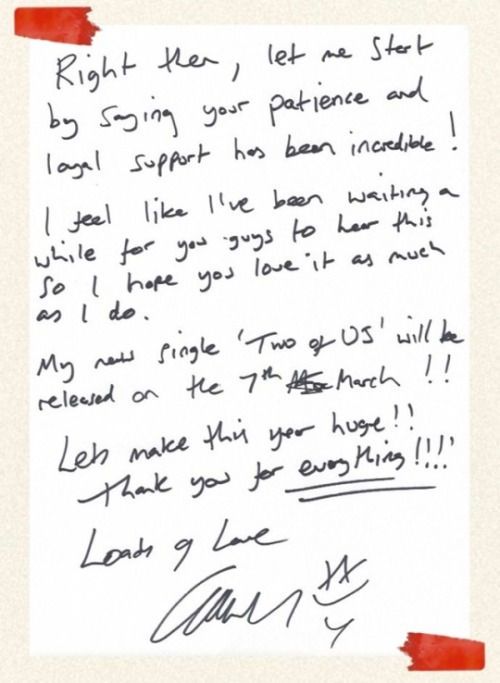 Right then, let me start
by saying your patience and
loyal support has been incredible!
I feel like I've been waiting a
while for you guys to hear this
so I hope you love it as much
as I do.
My new single 'Two of US' will be
released on the 7th March !!
Lets make this year huge!!
Thank you for everything!!!!
Loads of Love
XX